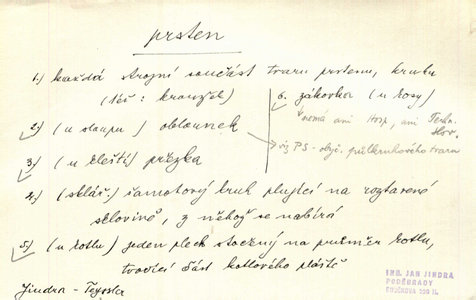 prsten
1.) každá strojní součást tvaru prstenu, kruhu
(též: kroužek)
2.) (u sloupu) obloucek
3.) (u kleští) přezka
4.) (sklář.) šamotový kruh plující na roztavené
sklovině, z něhož se nabírá
5.) (u kotlu) jeden plech stočený na průměr kotlu,
tvořící část kotlového pláště
6. zákovka (u kosy)
nemá ani Hosp, ani Techn.
Slov.
viz PS - obje. půlkruhového tvaru
Jindra - Teyssler
ING. JAN JINDRA
PODĚBRADY